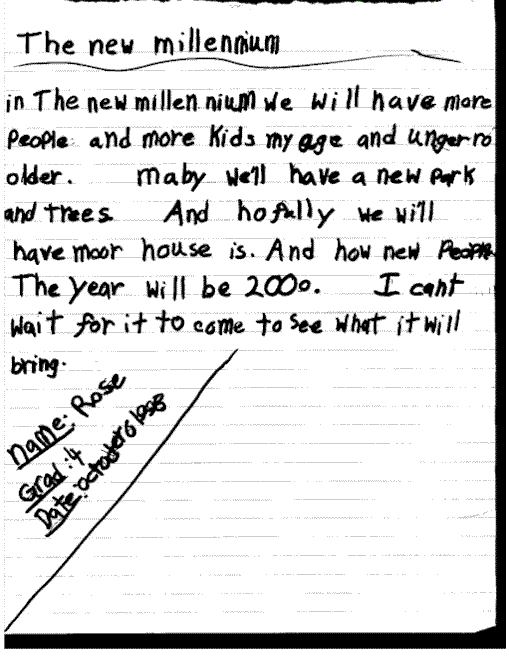 The new millennium
in The new millennium we will have more
People and more Kids my age and unger ro
older. maby we'll have a new park
and trees. And hofully we will
have moor house is. And how new People
The year will be 2000. I cant
wait for it to come to see what it will
bring.
name: Rose
Grad: 4
Date: octouber 6 1998